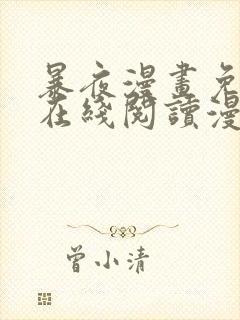 暴夜漫畫免
在綫閱讀漫
曾小清